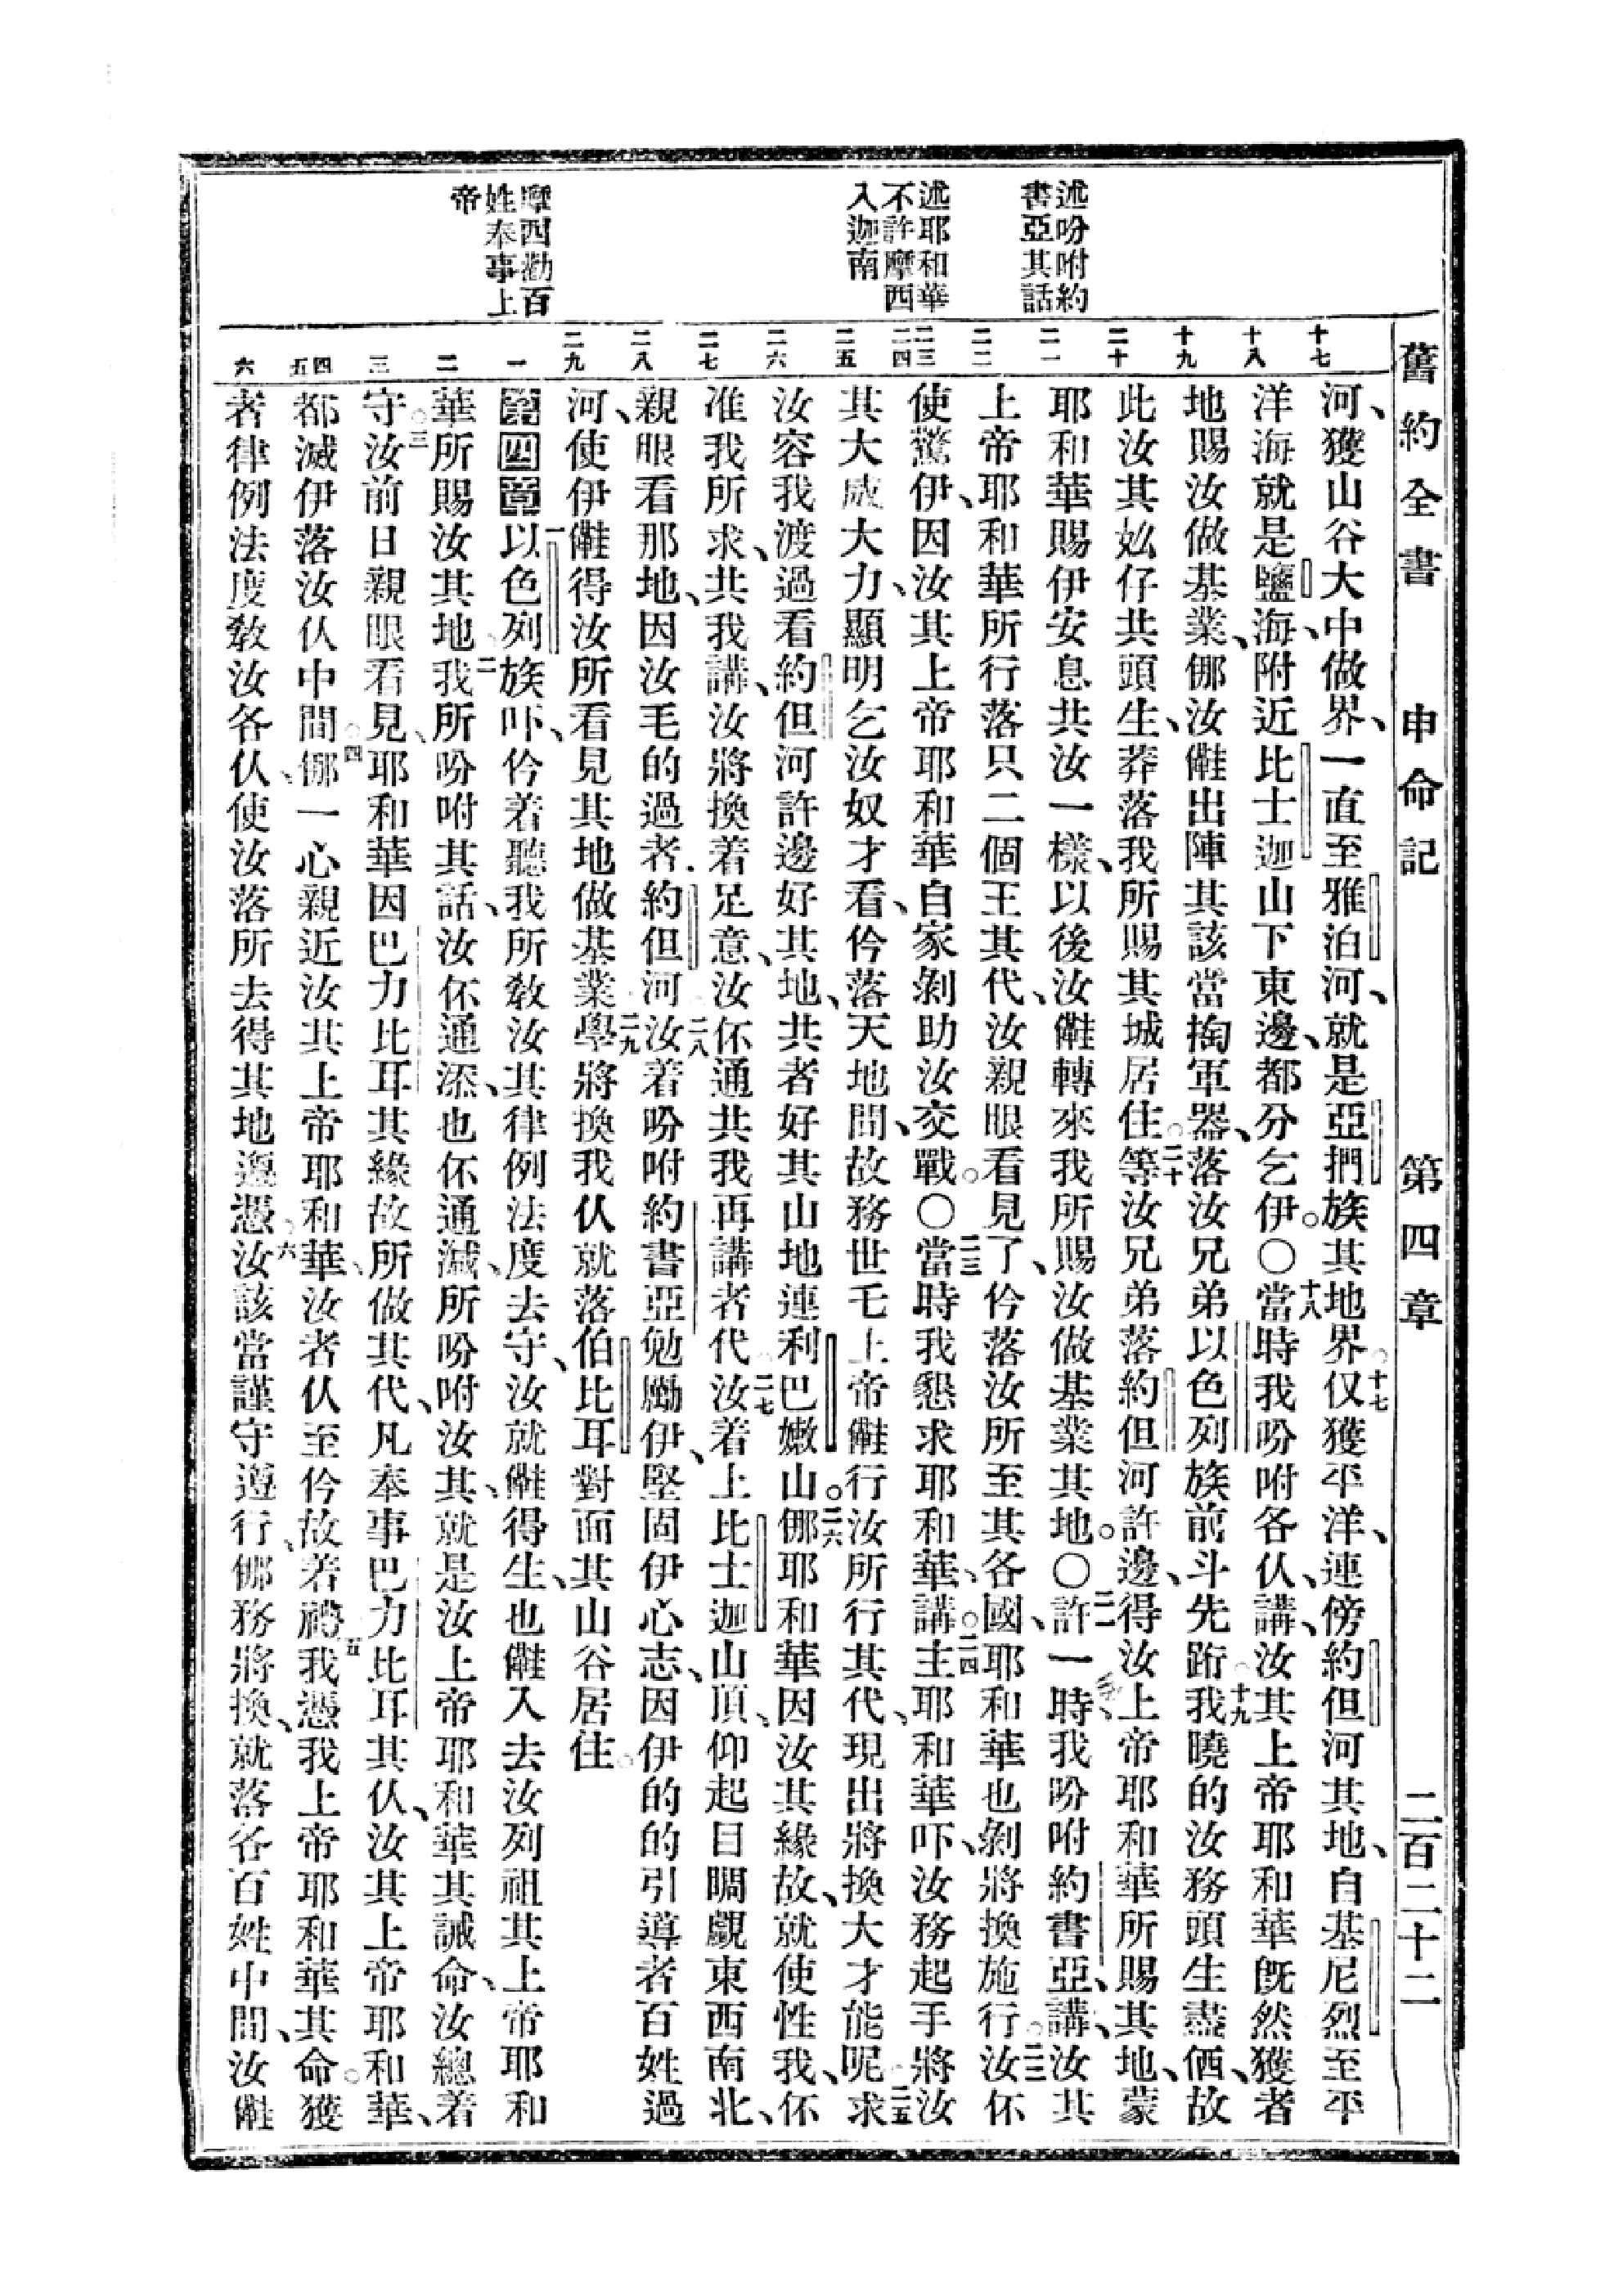 舊約全書　申命記　第四章　二百二十二
述吩咐約
書亞其話
述耶和華
不許摩西
入迦南
摩西勸百
姓奉事上
帝
十七
十八
十九
二十
二一
二二
二三
二四
二五
二六
二七
二八
二九
一
二
三
四
五
六
河、獲山谷大中做界、一直至雅泊河、就是亞捫族其地界。十七仅獲平洋、連傍約但河其地、自基尼烈至平
洋海就是鹽海、附近比士迦山下東邊、都分乞伊。〇十八當時我吩咐各仈、講、汝其上帝耶和華既然獲者
地賜汝做基業、㑚汝㒕出陣其該當掏軍器、落汝兄弟以色列族前斗先跨。十九我曉的汝務頭生盡価、故
此汝其妐仔共頭生、莽落我所賜其城居住。二十等汝兄弟落約但河許邊、得汝上帝耶和華所賜其地、蒙
耶和華賜伊安息共汝一樣、以後汝㒕轉來我所賜汝做基業其地。〇二一許一時我吩咐約書亞、講、汝其
上帝耶和華所行落只二個王其代、汝親眼看見了、仱落汝所至其各國、耶和華也剝將換施行。二二汝伓
使驚伊、因汝其上帝耶和華自家剝助汝交戰。〇二三當時我懇求耶和華、講、二四主耶和華吓、汝務起手將汝
其大威大力、顯明乞汝奴才看、仱落天地間、故務世乇上帝㒕行汝所行其代、現出將換大才能呢、二五求
汝容我渡過看約但河許邊好其地、共者好其山地連利巴嫩山。二六㑚耶和華因汝其緣故、就使性我、伓
准我所求、共我講、汝將換着足意、汝伓通共我再講者代、二七汝着上比士迦山頂、仰起目睭覷東西南北、
親眼看那地、因汝毛的過者約但河。二八汝着吩咐約書亞勉勵伊、堅固伊心志、因伊的的引導者百姓過
河、使伊㒕得汝所看見其地做基業。二九學將換我仈就落伯比耳對面其山谷居住。
第四章一以色列族吓、仱着聽我所教汝其律例法度去守、汝就㒕得生、也㒕入去汝列祖其上帝耶和
華所賜汝其地。二我所吩咐其話、汝伓通添、也伓通減、所吩咐汝其、就是汝上帝耶和華其誡命、汝總着
守。三汝前日親眼看見、耶和華因巴力比耳其緣故、所做其代、凡奉事巴力比耳其仈、汝其上帝耶和華、
都滅伊落汝仈中間。四㑚一心親近汝其上帝耶和華、汝者仈至仱故若禮。五我憑我上帝耶和華其命、獲
者律例法度教汝各仈、使汝落所去得其地遵憑。六汝該當謹守遵行、㑚務將換、就落各百姓中間、汝㒕